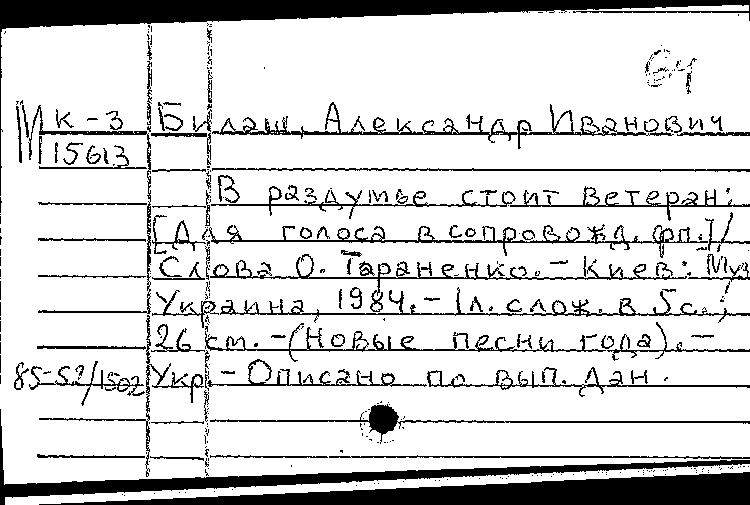 64
М К-3 Билаш, Александр Иванович
15613
В раздумье стоит ветеран:
[Для голоса в сопровожд. фп.]/
Слова О. Тараненко.- Киев: Муз
Украина, 1984.- 1л. слож. в 5с.;
26 см. -(Новые песни года).-
85-52/1502 Укр.- Описано по вып. дан.